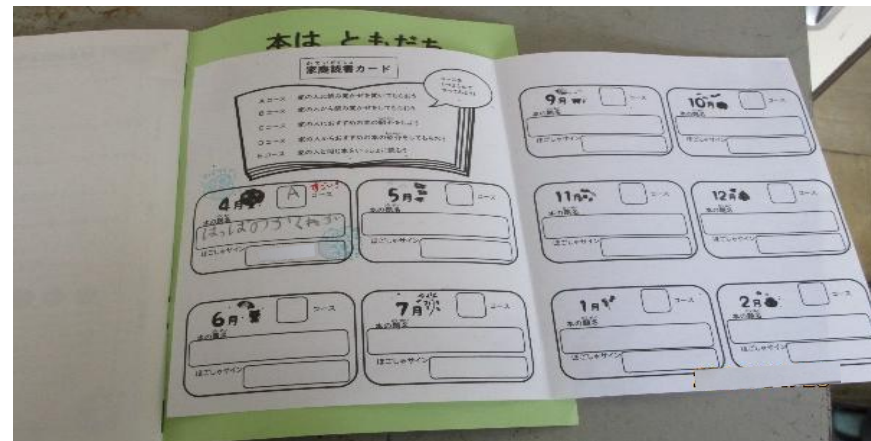 本は ともだち
かていどくしょ
家庭読書カード
Aコース 家の人に読み聞かせを聞いてもらおう
Bコース 家の人から読み聞かせをしてもらおう
Cコース 家の人におすすめの本の紹介をしよう
Dコース 家の人からおすすめの本の紹介をしてもらおう
Eコース 家の人と同じ本をいっしょに読もう
4月 A コース
すごい!
本の題名
はっぱのかくれが
ほごしゃサイン
5月 コース
本の題名
ほごしゃサイン
6月 コース
本の題名
ほごしゃサイン
7月 コース
本の題名
ほごしゃサイン
9月 コース
本の題名
ほごしゃサイン
10月 コース
本の題名
ほごしゃサイン
11月 コース
本の題名
ほごしゃサイン
12月 コース
本の題名
ほごしゃサイン
1月 コース
本の題名
ほごしゃサイン
2月 コース
本の題名
ほごしゃサイン